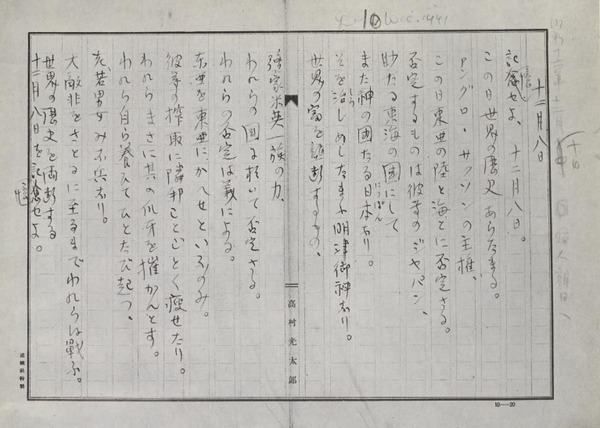 10 Dec. 1941
十二月八日
記憶せよ、十二月八日。
この日世界の歴史あらたまる。
アングロ・サクソンの主権、
この日東亜の陸と海とに否定さる。
否定するものは彼等のジャパン、
眇たる東海の国にして
また神の国たる日本なり。
にっぽん
そを治しめしたまふ明津御神なり。
世界の富を壟断するもの、
強豪米英一族の力、
われらの国に於いて否定さる。
われらの否定は義による。
東亜を東亜にかへせといふのみ。
彼等の搾取に隣邦ことごとく痩せたり。
われらまさに其の爪牙を摧かんとす。
われら自ら養ひてひとたび起つ、
老若男女みな兵なり。
大敵非をさとるに至るまでわれらは戦ふ。
世界の歴史を両断する
十二月八日を記憶せよ。
高村光太郎
10—20